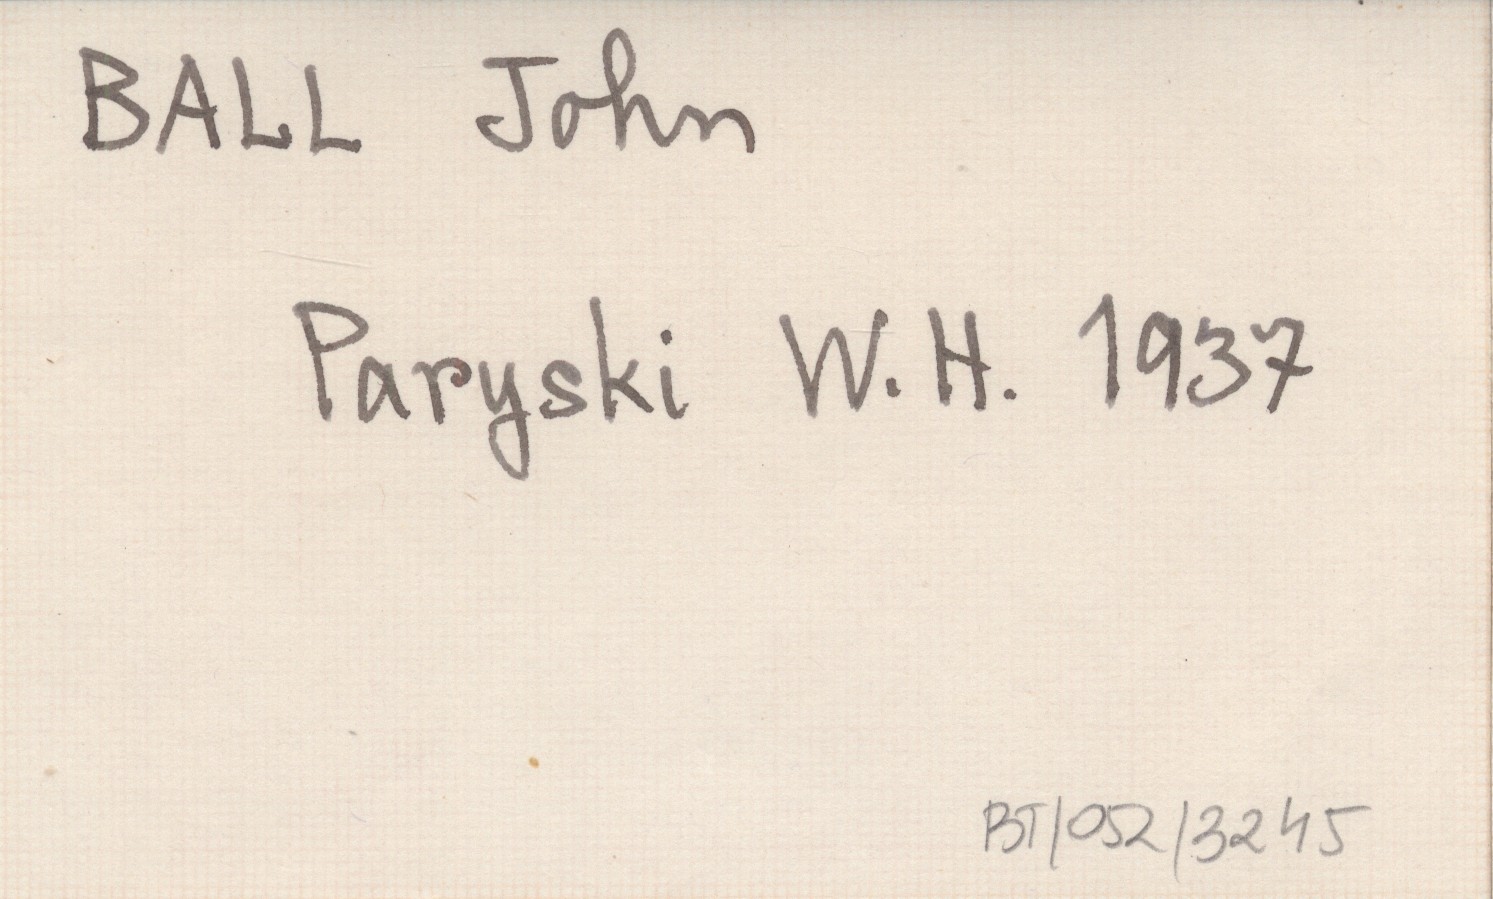 BALL John
Paryski W.H. 1937
BT/052/3245